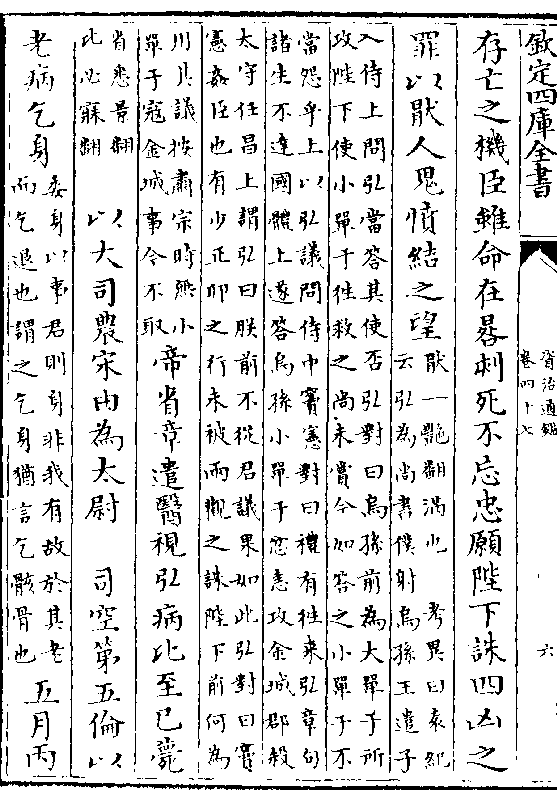 欽定四庫全書
資治通鑑
卷四十七
六
存亡之機臣雖命在晷刻死不忘忠願陛下誅四凶之
罪以厭人鬼憤結之望厭一艷翻滿也 考異曰袁紀
云弘為尚書僕射烏孫王遣子
入侍上問弘當答其使否弘對曰烏孫前為大單于所
攻陛下使小單于往救之尚未賞今如答之小單于不
當怨乎上以弘議問侍中竇憲對曰禮有往來弘章句
諸生不達國體上遂答烏孫小單于忿恚攻金城郡殺
太守任昌上謂弘曰朕前不從君議果如此弘對曰竇
憲姦臣也有少正卯之行未被兩觀之誅陛下前何為
用其議按肅宗時無小
單于寇金城事今不取
帝省章遣醫視弘病比至已薨
省悉景翻
比必寐翻
以大司農宋由為太尉 司空第五倫以
老病乞身
委身以事君則身非我有故於其老
而乞退也謂之乞身猶言乞骸骨也
五月丙